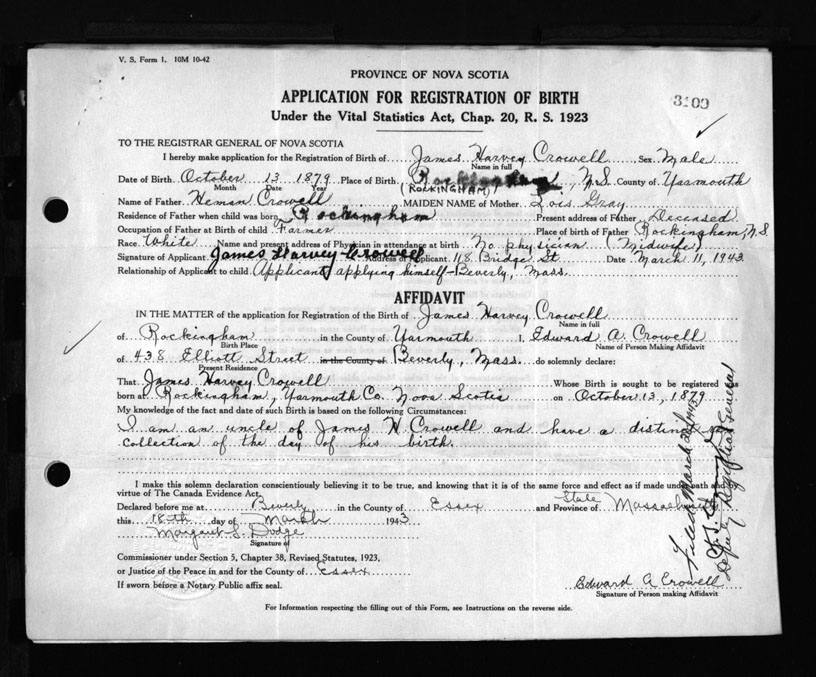 V. S. Form 1. 10M 10-42
PROVINCE OF NOVA SCOTIA
3100
APPLICATION FOR REGISTRATION OF BIRTH
Under the Vital Statistics Act, Chap. 20, R. S. 1923
TO THE REGISTRAR GENERAL OF NOVA SCOTIA
I hereby make application for the Registration of Birth of James Harvey Crowell Sex Male
Name in full
Date of Birth October 13 1879 Place of Birth Rockingham, N.S County of Yarmouth
Month Date Year (ROCKINGHAM)
Name of Father Heman Crowell MAIDEN NAME of Mother Lois Gray
Residence of Father when child was born Rockingham Present address of Father Deceased
Occupation of Father at Birth of child Farmer Place of birth of Father Rockingham, N.S
Race White Name and present address of Physician in attendance at birth No physician (Midwife)
Signature of Applicant James Harvey Crowell Address of Applicant 118 Bridge St Date March 11, 1943
Relationship of Applicant to child Applicant applying himself-Beverly, Mass.
AFFIDAVIT
IN THE MATTER of the application for Registration of the Birth of James Harvey Crowell
Name in full
of Rockingham in the County of Yarmouth I, Edward A. Crowell
Birth Place Name of Person Making Affidavit
of 438 Elliott Street in the County of Beverly, Mass. do solemnly declare:
Present Residence
That James Harvey Crowell Whose Birth is sought to be registered was
born at Rockingham, Yarmouth Co. Nova Scotia on October 13, 1879
My knowledge of the fact and date of such Birth is based on the following Circumstances:
I am an uncle of James H Crowell and have a distinct re
collection of the day of his birth.
I make this solemn declaration conscientiously believing it to be true, and knowing that it is of the same force and effect as if made under oath and by
virtue of The Canada Evidence Act.
State
Declared before me at Beverly in the County of Essex and Province of Massachusetts
this 18th day of March 1943
Margaret S. Dodge
Signature of
Commissioner under Section 5, Chapter 38, Revised Statutes, 1923,
or Justice of the Peace in and for the County of Essex
If sworn before a Notary Public affix seal.
Edward A Crowell
Signature of Person making Affidavit
For Information respecting the filling out of this Form, see Instructions on the reverse side.
Filed March 1943
Deputy Registrar General